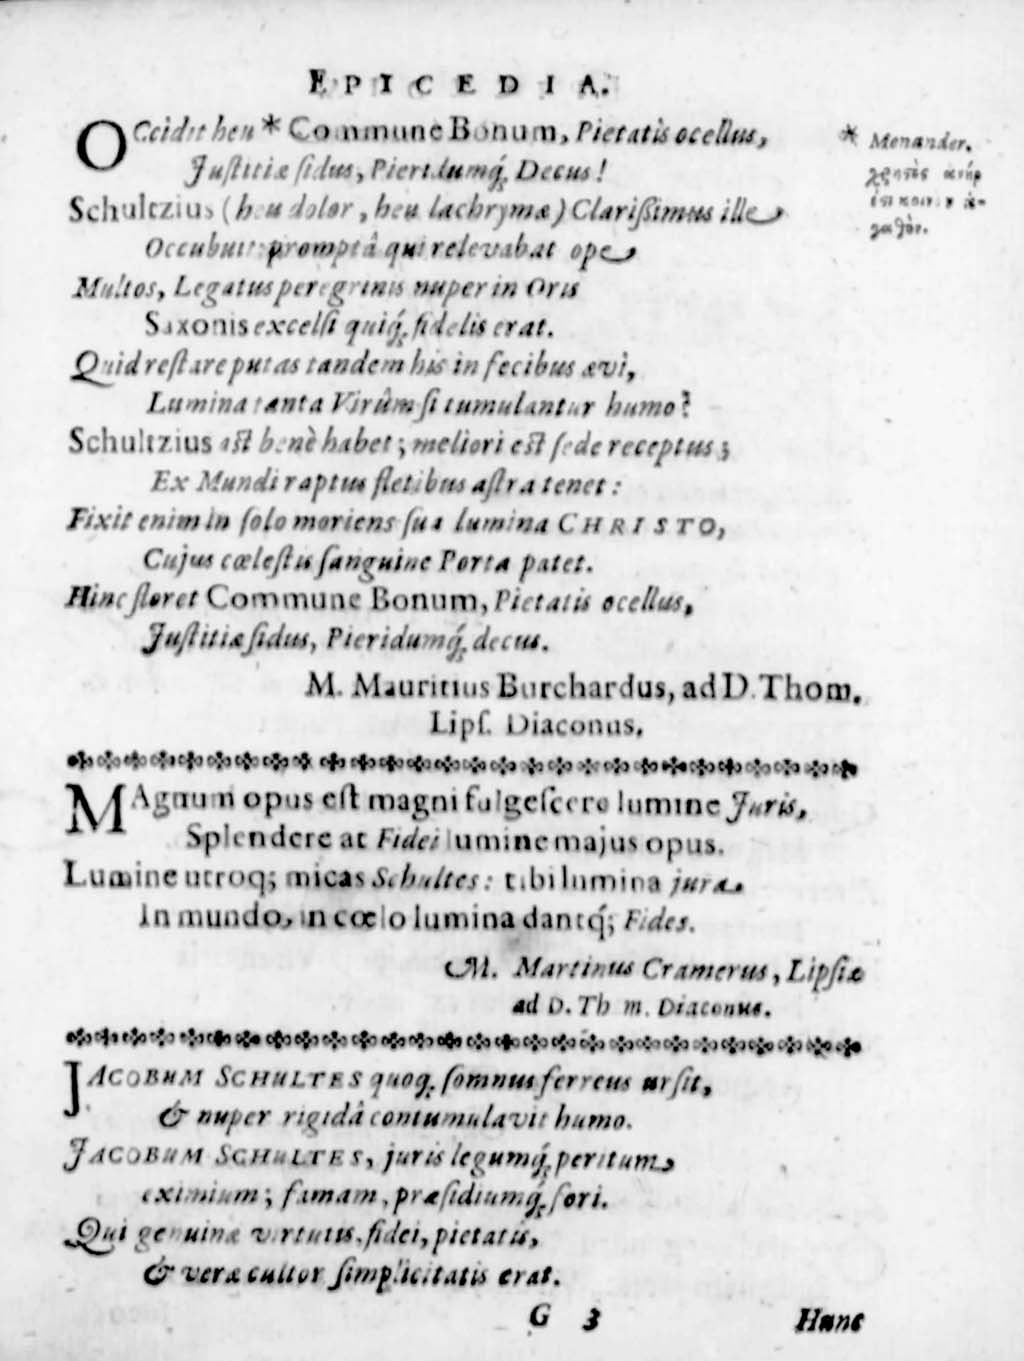 EPICEDIA.
OCcidit heu * Commune Bonum, Pietatis ocellus,
Justitiæ sidus, Pieridumq́; Decus!
Schultzius (heu dolor, heu lachrymæ) Clarissimus ille
Occubuit: promptâ qui relevabat ope
Multos, Legatus peregrinis nuper in Oris
Saxonis excelsi quiq́; fidelis erat.
Quid restare putas tandem his in fecibus ævi,
Lumina tanta Virûm si tumulantur humo?
Schultzius ast benè habet; meliori est sede receptus;
Ex Mundi raptus fletibus astra tenet:
Fixit enim in solo moriens sua lumina CHRISTO,
Cujus cœlestis sanguine Porta patet.
Hinc floret Commune Bonum, Pietatis ocellus,
Justitiæ sidus, Pieridumq́; decus.
M. Mauritius Burchardus, ad D. Thom.
Lips. Diaconus.
* Menander.
χρηστὸς ἀνήρ
ἐστι κοινὸν ἀ-
γαθόν.
MAgnum opus est magni fulgescere lumine Juris,
Splendere at Fidei lumine majus opus.
Lumine utroq; micas Schultes: tibi lumina jura
In mundo, in cœlo lumina dantq́; Fides.
M. Martinus Cramerus, Lipsiæ
ad D. Thom. Diaconus.
JACOBUM SCHULTES quoq; somnus ferreus ursit,
& nuper rigidâ contumulavit humo.
JACOBUM SCHULTES, juris legumq́; peritum
eximium; famam, præsidiumq́; fori.
Qui genuinæ virtutis, fidei, pietatis,
& veræ cultor simplicitatis erat.
G 3
Hunc